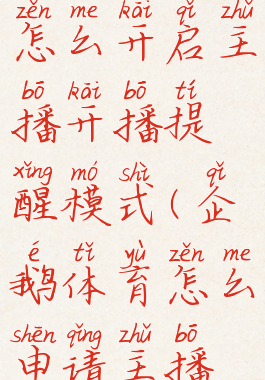 zěn me kāi qǐ zhǔ
怎么开启主
bō kāi bō tí
播开播提
xǐng mó shì qǐ
醒模式（企
é tǐ yù zěn me
鹅体育怎么
shēn qǐng zhǔ bō
申请主播